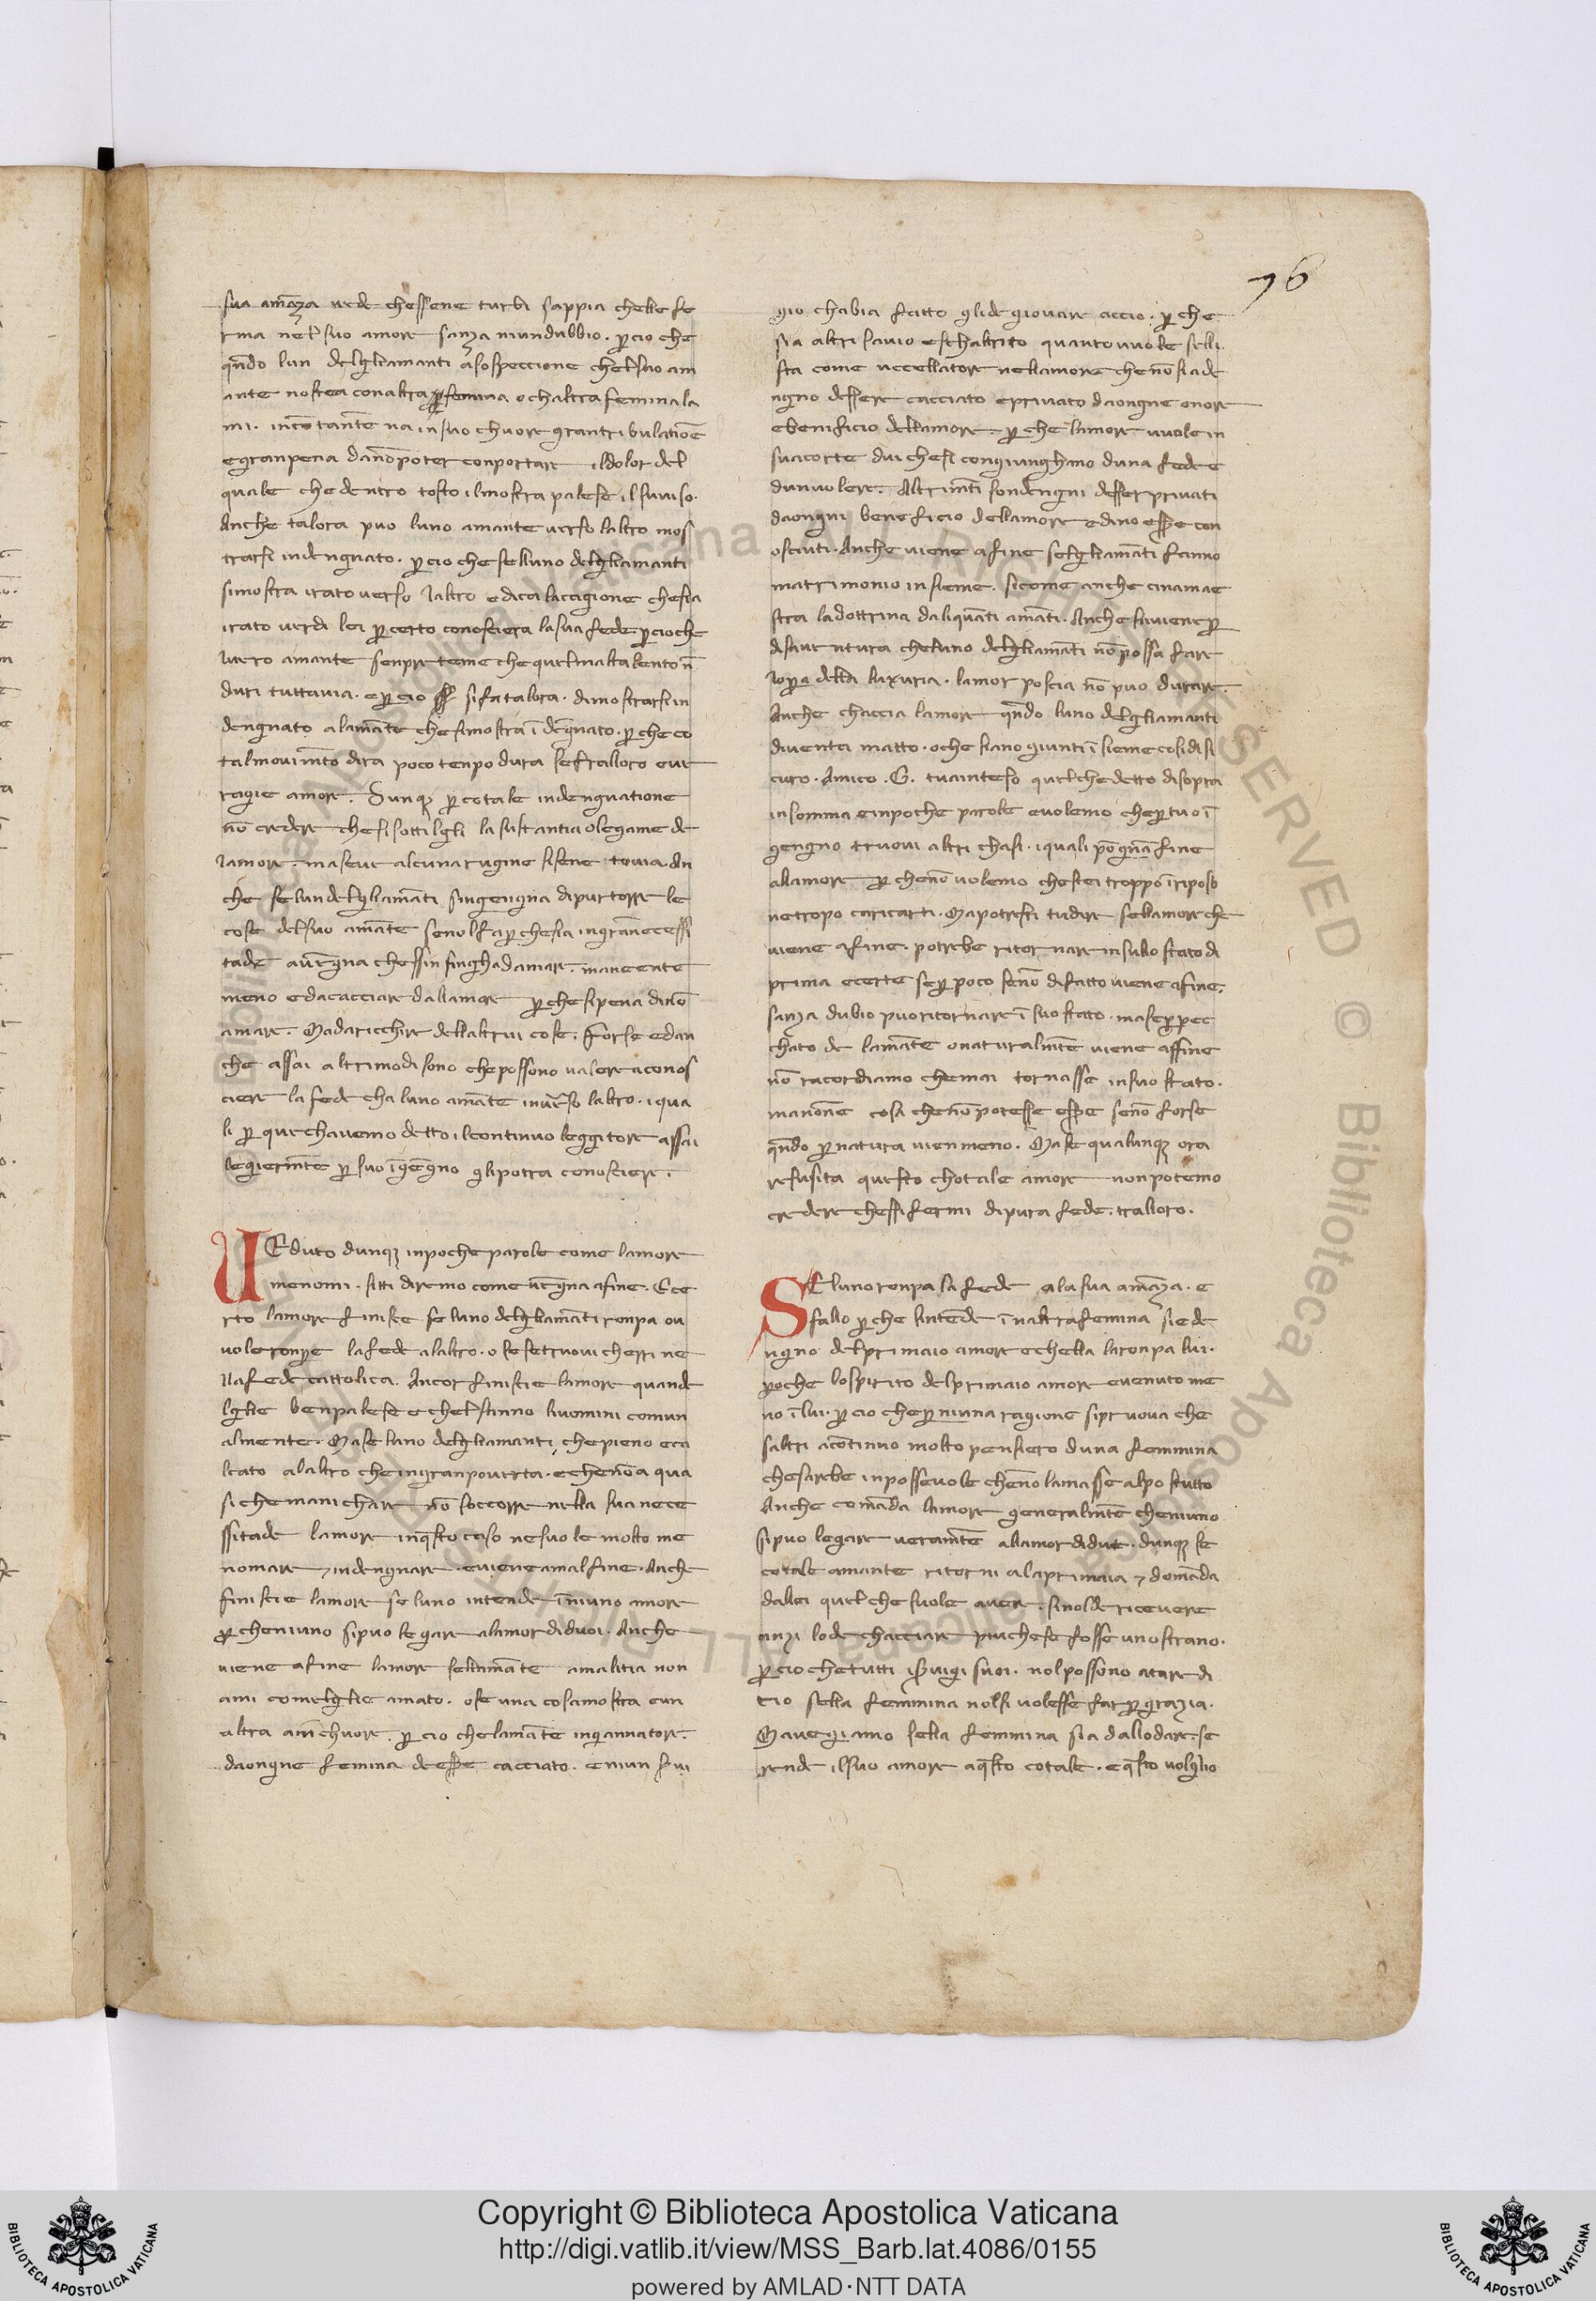 76
sua amāza uede chessene turbi sappia chelle fe
rma nel suo amore sanza niundubbio. ꝑcio che
qn̄do lun deglliamanti a sospeccione chel suo am
ante nō stea conaltra femina o chaltra feminala
mi. incōtanente na insuo chuore grantribulatiōe
egranpena danō poter conportare ildolor del
quale che dentro tosto ilmostra palese ilsuuiso.
Anche talora puo luno amante uerso laltro mos
trarsi indengnato. ꝑcio che selluno deglliamanti
simostra irato uerso laltro edica laccagione chesia
irato uerdi lei ꝑcerto conosciera lasua fede. ꝑcioche
luero amante senpre teme che quelmaltalento nō
duri tuttauia. eꝑcio si fa talora. dimostrarsi in
dengnato alamāte chesimostra ī dēgnato. ꝑche co
talmouimēto dira poco tenpo dura sefralloro eue
ragie amore. Dunqꝫ ꝑcotale indengnatione
nō credere chesi sottilgli la sustantia olegame de
lamore. maseue alcuna rugine sisene touia. An
che selun deglliamāti singengna dipur torre le
cose delsuo amāte senolfa ꝑchesia ingrānecessi
tade auēgna chessin fingha damare. maneente
meno edacacciare dallamor ꝑche sipena dinō
amare. Madaricchire dellaltrui cose. Forse edan
che assai altrimodi sono chepossono ualere aconos
ciere la fede cha luno amāte inuerso laltro. iqua
li ꝑ que chauemo detto ilcontinuo leggitore assai
legierm̄te ꝑ suo īgēgno glipotra conosciere.
UEduto dunqꝫ inpoche parole come lamore
menomi. sitti diremo come uēgna afine. Ece
rto lamore finisce se luno deglliamāti ronpa ou
uole ronpe la fede alaltro. o se setruoui cherri ne
llafede cattolica. Ancor finiscie lamore quande
lglie benpalese e chelsanno liuomini comun
almente. Mase luno deglliamanti chepieno eca
lcato alaltro cheingranpouerta. echenōa qua
sichemanichare nō soccorre nella suanece
ssitade lamore inq̄sto caso nesuole molto me
nomare ⁊ indengnare. euieneamalfine. Anche
finiscie lamore se luno intende ī niuno amore
ꝑcheniuno sipuo legare alamor diduoi. Anche
uiene afine lamore sellamāte amalitia non
ami comeglie amato. ose una cosamostra eun
altra amīchuore. ꝑcio chelamāte ingannatore.
daongne femina deeſſe cacciato. eniun ſrui
gio chabia fatto glide giouare accio. ꝑche
sia altri sauio eschaltrito quanto uuole selli.
sta come uccellatore nellamore chenō siade
ngno dessere cacciato epriuato daongne onore
ebenificio dellamore. ꝑche lamore uuole in
suacorte dui chesi congiunghino duna fede e
dunuolere. Altrim̄ti sondengni desser priuati
daongni beneficio dellamore e dino esse con
osciuti. Anche uiene afine seglliamāti fanno
matrimonio insieme. sicome anche cinamae
stra ladottrina daliquāti amāti. Anche siuiene ꝑ
disauentura cheluno deglliamāti nō possa fare
loꝑa della luxuria. lamor poscia nō puo durare.
Anche chaccia lamore qn̄do luno deglliamanti
diuenta matto. oche siano giunti ī sieme cosi disi
curo. Amico .G. tuainteso quelchedetto disopra
insomma einpoche parole euolemo cheꝑtuo ī
gengno truoui altri chasi. iquali pōgnā fine
allamore ꝑ chenō uolemo chestei troppo ī riposo
netropo caricarti. Mapotresti tudire sellamore che
uiene afine. potrebe ritornare insullo stato di
prima ecerte seꝑ poco senō difatto uiene afine.
sanza dubio puoritornare ī suo stato. maseꝑ pec
chato de lamāte onaturalm̄te uiene affine
nō racordiamo chemai tornasse insuo stato.
manonne cosi chenō potesse esse senō forse
qn̄do ꝑ natura uien meno. Ma se qualunqꝫ ora
resusita questo chotale amore nonpotemo
credere chessi fermi dipura fede. tralloro.
SE luno ronpa la fede ala sua amāza. e
fallo ꝑche lintēde ī naltra femina siede
ngno delprimaio amore echella laronpa lui.
ꝑoche lospirito delprimaio amore euenuto me
no īlui. ꝑcio cheꝑniuna ragione sipruoua che
saltri acōtinuo molto pensiero duna femmina
chesarebe inpossevole chenō lamasse alpo stutto
Anche comāda lamore generalm̄te cheniuno
sipuo legare ueram̄te allamordidue. dunqꝫ se
cotale amante ritorni alaprimaia ⁊ domāda
dallei quelche suole auere. sinolde riceuere
anzi lode chacciare piuchese fosse unostrano.
ꝑcio chetutti iſruigi suoi. nolpossono atare di
cio sella femmina nolsi uolesse far ꝑ grazia.
Mauegiamo sella femmina sia dallodare. se
rende ilsuo amore aq̄sto cotale. eq̄sto uolglio
Copyright © Biblioteca Apostolica Vaticana
http://digi.vatlib.it/view/MSS_Barb.lat.4086/0155
powered by AMLAD·NTT DATA
BIBLIOTECA APOSTOLICA VATICANA
BIBLIOTECA APOSTOLICA VATICANA